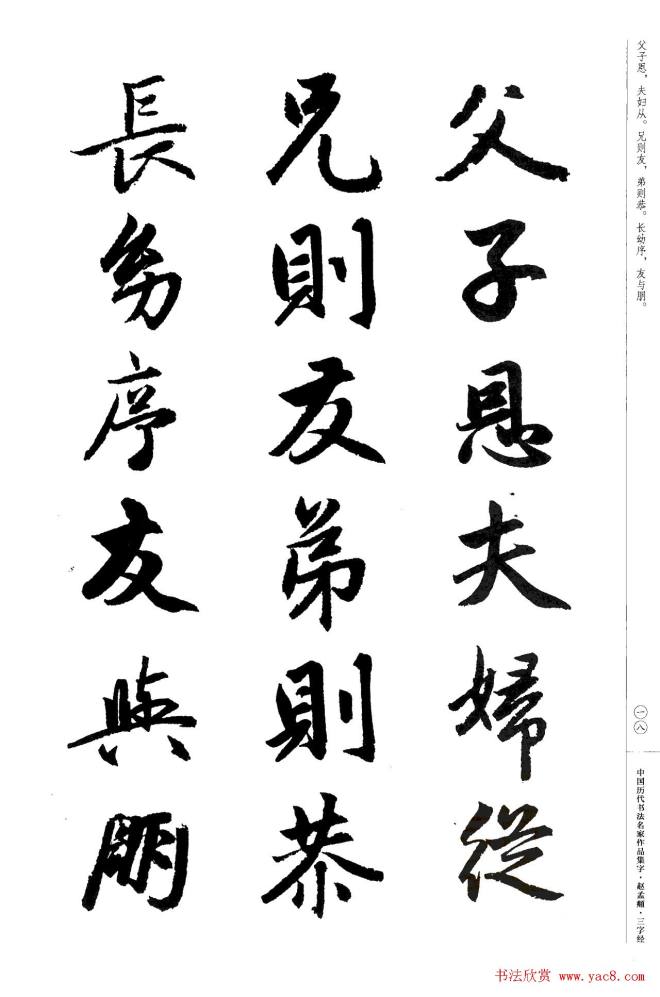 父子恩，夫妇从。兄则友，弟则恭。长幼序，友与朋。
一八
中国历代书法名家作品集字·赵孟頫·三字经
父子恩夫婦從
兄則友弟則恭
長幼序友與朋
书法欣赏 www.yac8.com